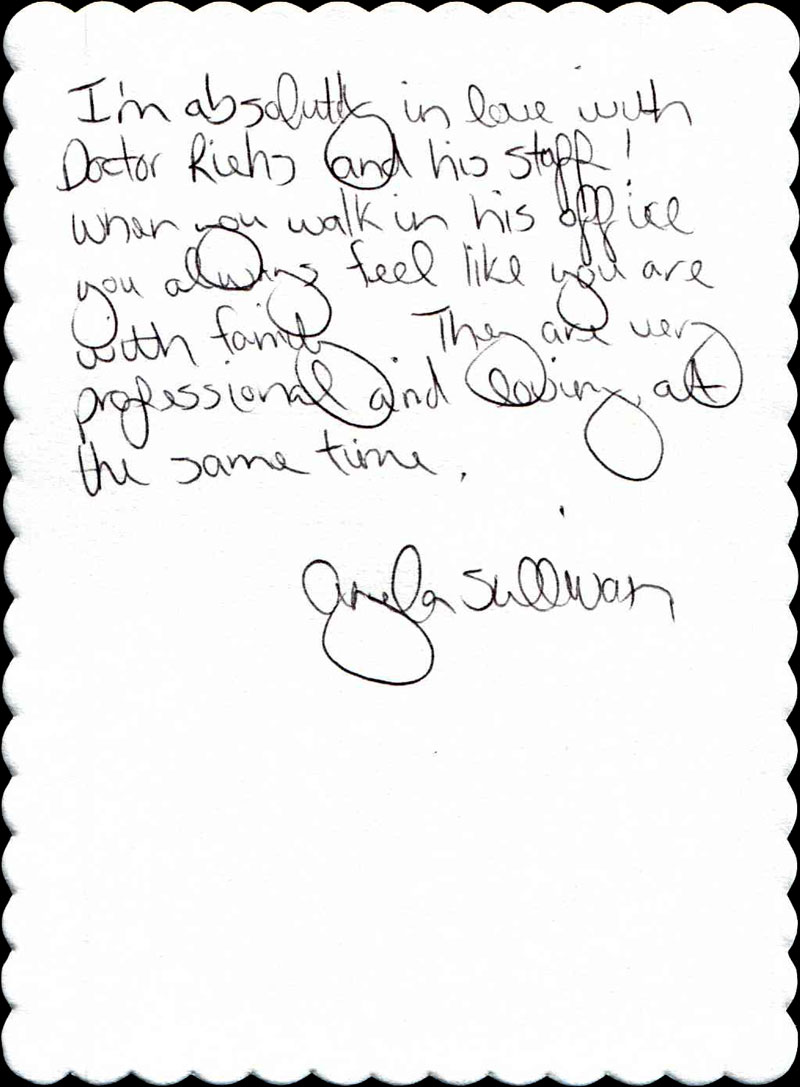 I'm absolutely in love with
Doctor Riehs and his staff!
when you walk in his office
you always feel like you are
with family They are very
professional and loving, at
the same time.
Angela Sullivan